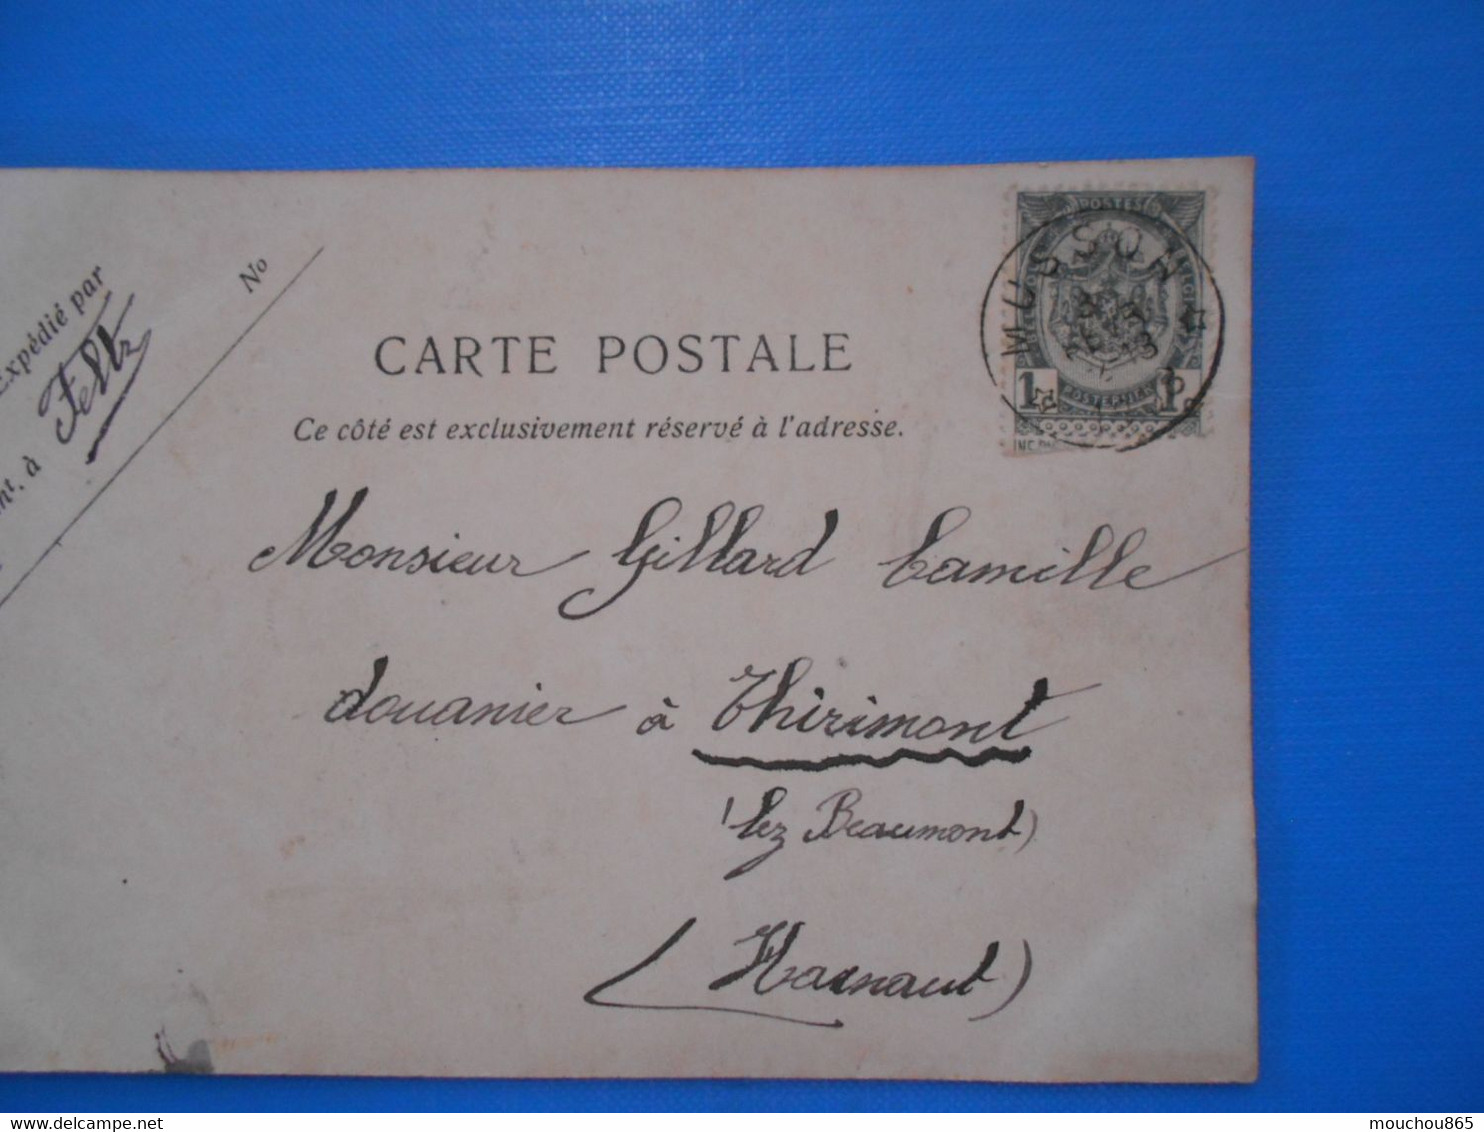 Expédié par
Feltz
nt. à
No
CARTE POSTALE
Ce côté est exclusivement réservé à l'adresse.
POSTES
MUSSON
1 POSTERIJEN 1
Monsieur Gillard Camille
douanier à Thirimont
(lez Beaumont)
(Hainaut)
mouchou865